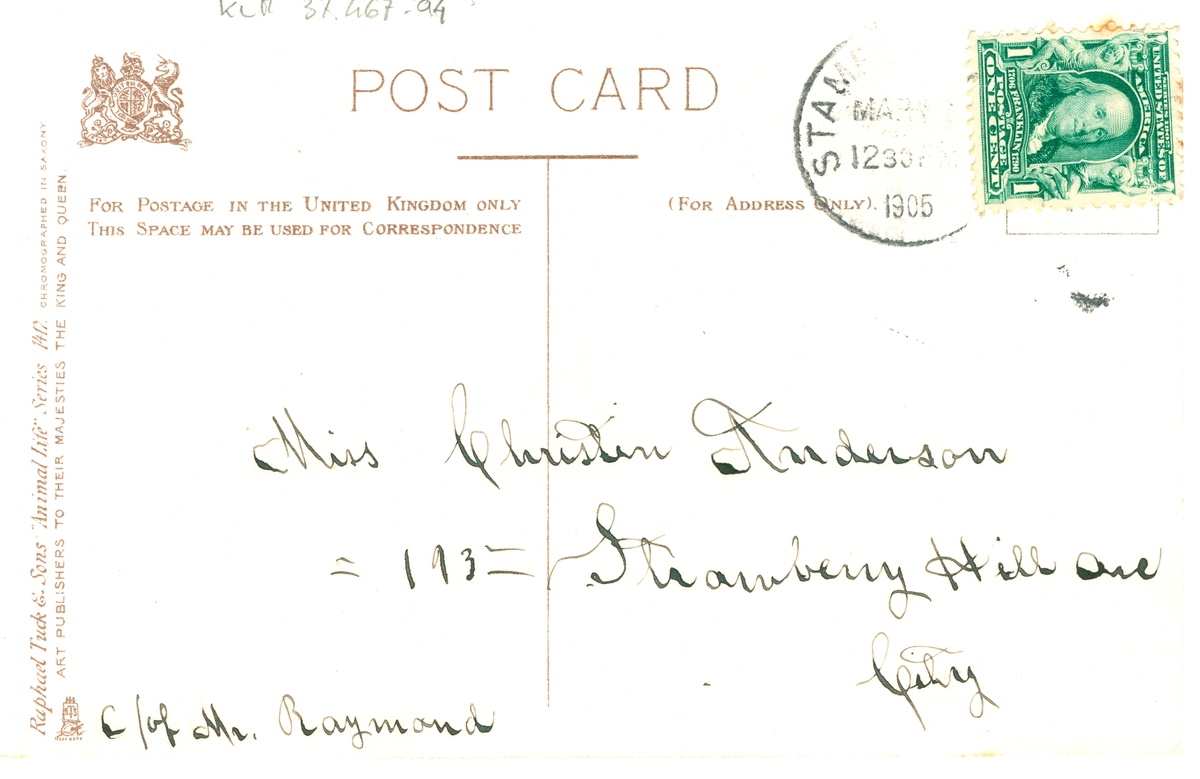 KLM 37.467-94
POST CARD
STAM
MAR
1230 PM
1905
UNITED STATES OF AMERICA
1 1
1706 FRANKLIN 1790
POSTAGE
ONE CENT
FOR POSTAGE IN THE UNITED KINGDOM ONLY
THIS SPACE MAY BE USED FOR CORRESPONDENCE
(FOR ADDRESS ONLY).
Miss Christin Anderson
= 193 = Strawberry Hill ave
City
c/of Mr. Raymond
Raphael Tuck & Sons' "Animal Life" Series 1417. CHROMOGRAPHED IN SAXONY
ART PUBLISHERS TO THEIR MAJESTIES THE KING AND QUEEN.